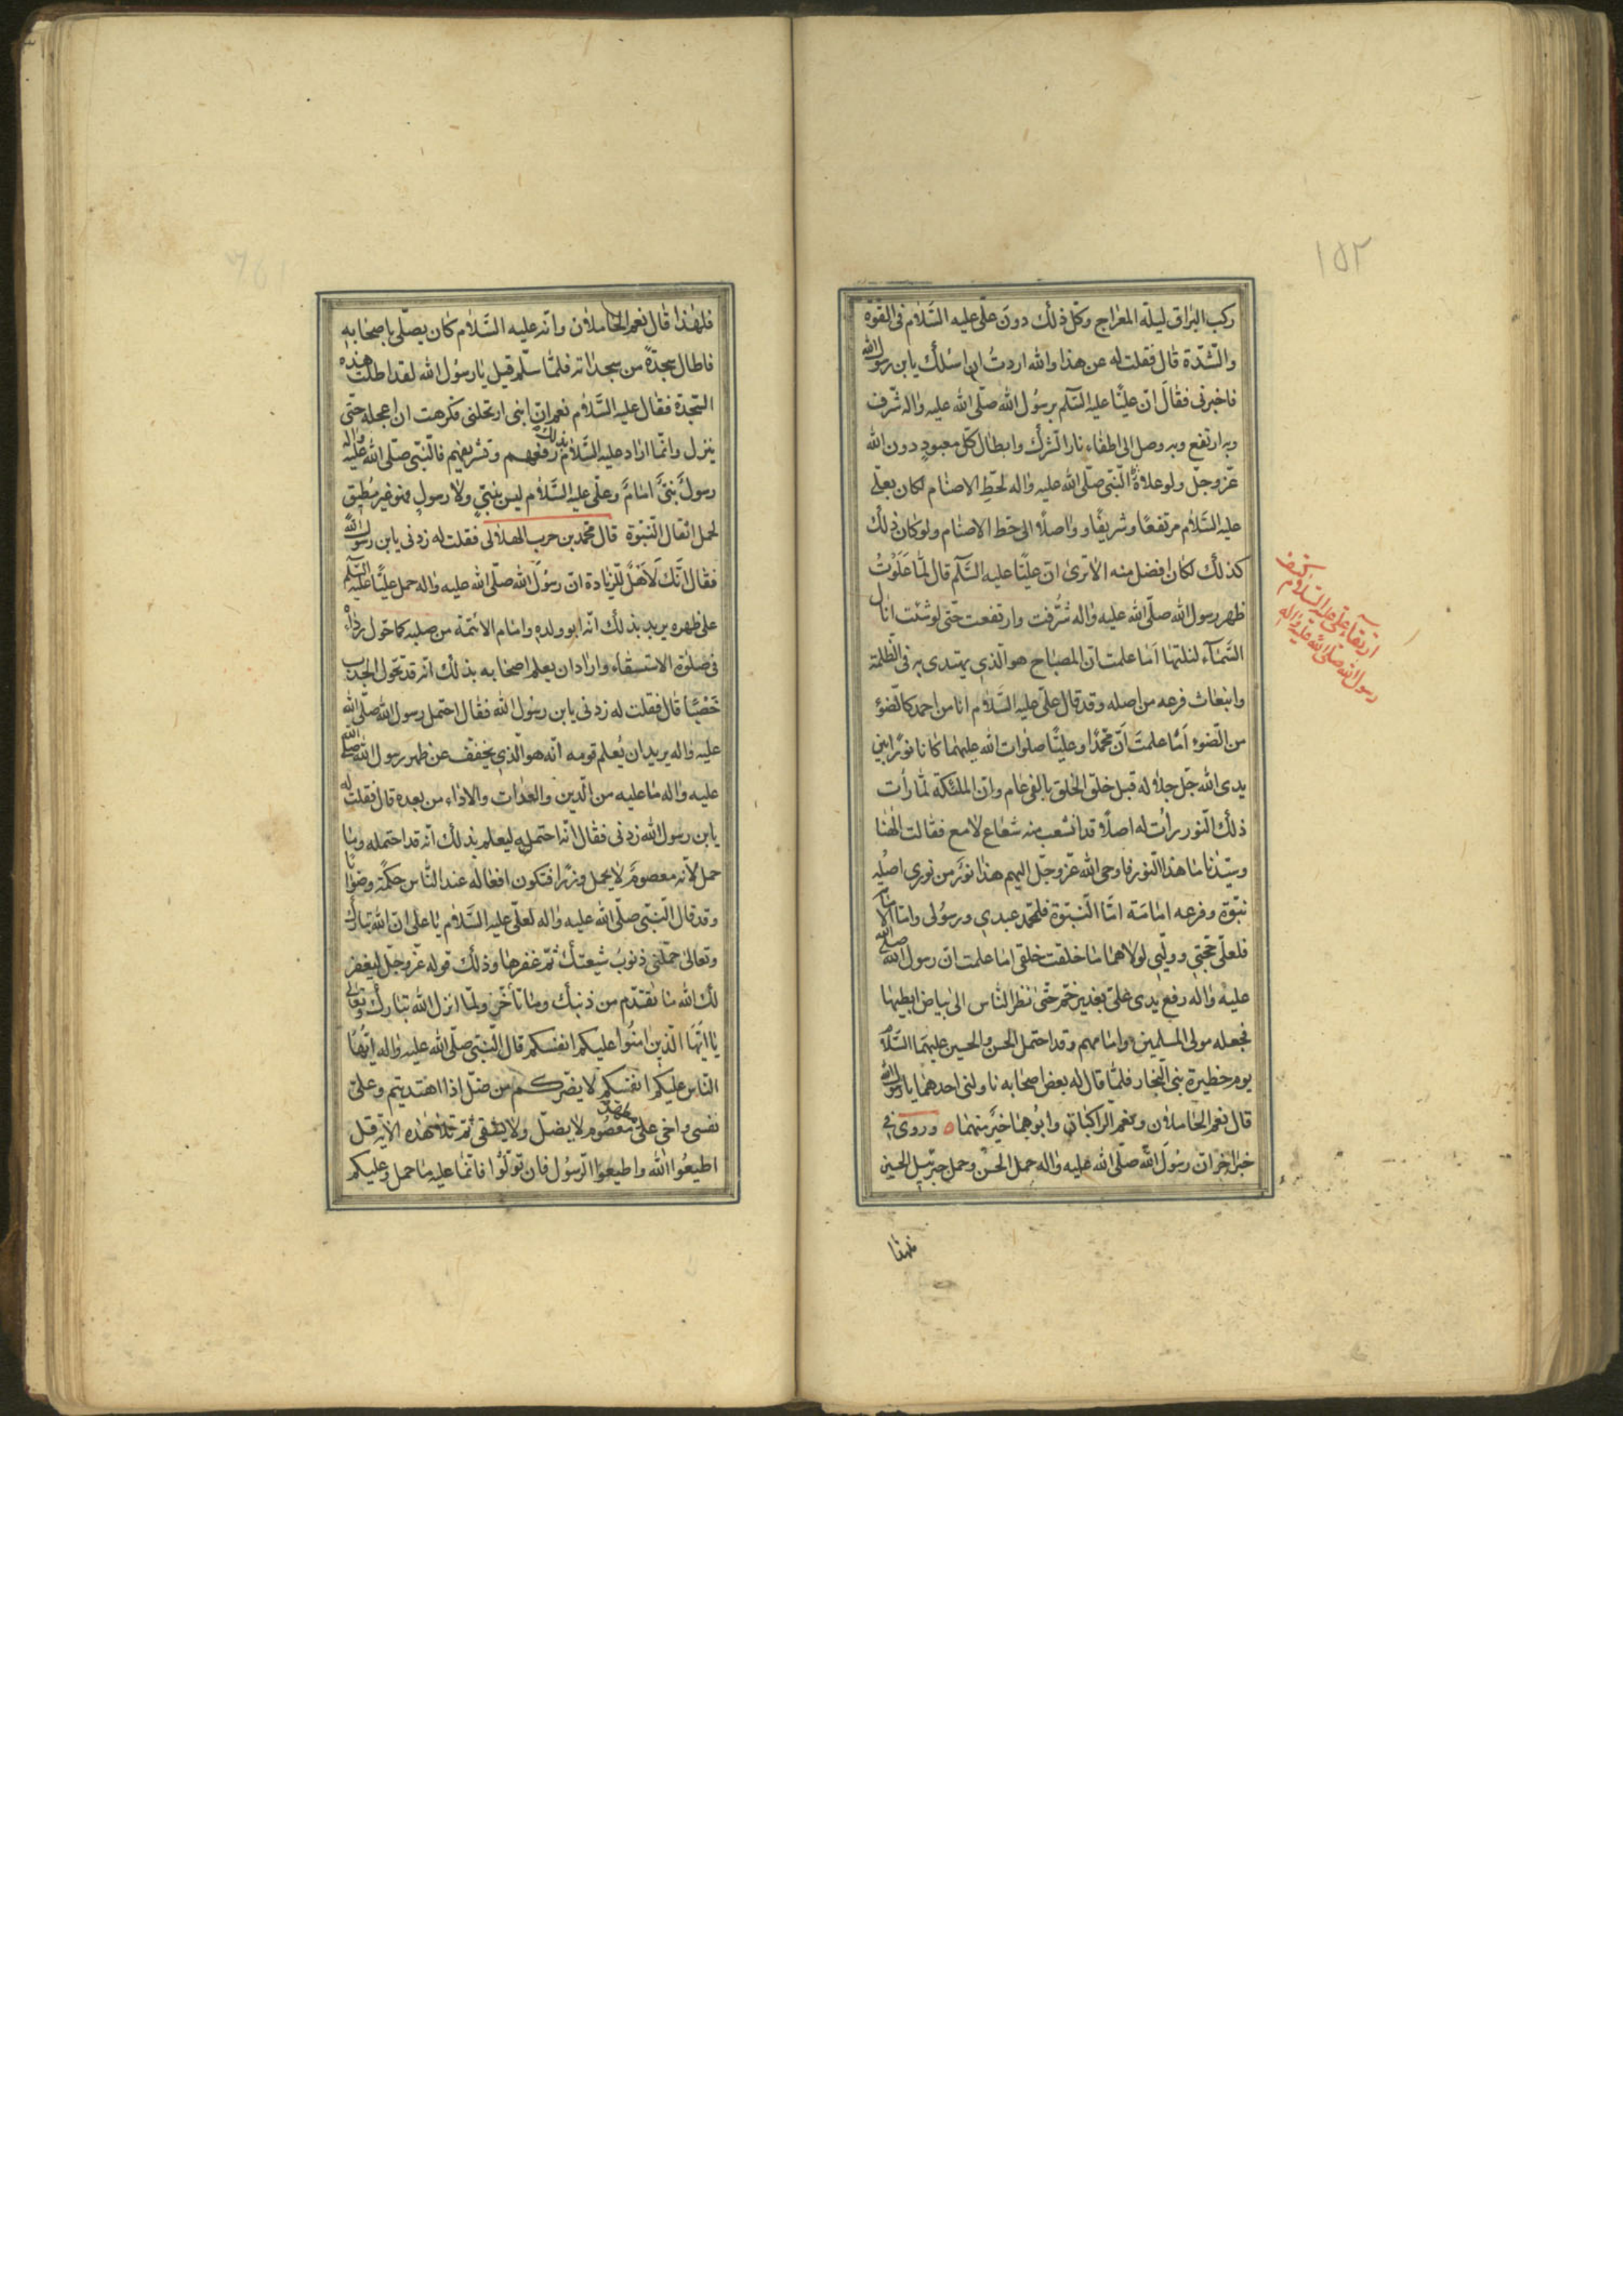 ١٥٢
ركب البراق ليلة المعراج وكل ذلك دون علي عليه السلام في القوة
والشدة قال فقلت له عن هذا والله اردت ان اسئلك يابن رسول الله
فاخبرني فقال ان عليا عليه السلم برسول الله صلى الله عليه واله شرف
وبه ارتفع وبه وصل الى اطفاء نار الشرك وابطال كل معبود دون الله
عز وجل ولو علاه النبي صلى الله عليه واله لحط الاصنام لكان بعلي
عليه السلام مرتفعا وشريفا وواصلا الى حط الاصنام ولو كان ذلك
كذلك لكان افضل منه الا ترى ان عليا عليه السلم قال لما علوت
ظهر رسول الله صلى الله عليه واله شرفت وارتفعت حتى لو شئت ان انال
السماء لنلتها اما علمت ان المصباح هو الذي يهتدى به في الظلمة
وانبعاث فرعه من اصله وقد قال علي عليه السلام انا من احمد كالضوء
من الضوء اما علمت ان محمدا وعليا صلوات الله عليهما كانا نورا بين
يدي الله جل جلاله قبل خلق الخلق بالفي عام وان الملئكة لما رأت
ذلك النور رأت له اصلا قد انشعب منه شعاع لامع فقالت الهنا
وسيدنا ما هذا النور فاوحى الله عز وجل اليهم هذا نور من نوري اصله
نبوة وفرعه امامة اما النبوة فلمحمد عبدي ورسولي واما الامامة
فلعلي حجتي ووليي لولاهما ما خلقت خلقي اما علمت ان رسول الله صلى الله
عليه واله رفع يدي علي بغدير خم حتى نظر الناس الى بياض ابطيهما
فجعله مولى المسلمين وامامهم وقد احتمل الحسن والحسين عليهما السلام
يوم حظيرة بني النجار فلما قال له بعض اصحابه ناولني احدهما يا رسول الله
قال نعم الحاملان ونعم الراكبان وابوهما خير منهما ه وروي في
خبر اخر ان رسول الله صلى الله عليه واله حمل الحسن وحمل جبرئيل الحسين
فلهذا
ارتقاء علي عليه السلام كتف
رسول الله صلى الله عليه واله
فلهذا قال نعم الحاملان وانه عليه السلام كان يصلي باصحابه
فاطال سجدة من سجداته فلما سلم قيل يا رسول الله لقد اطلت هذه
السجدة فقال عليه السلام نعم ان ابني ارتحلني فكرهت ان اعجله حتى
ينزل وانما اراد عليه السلام بذلك رفعهم وتشريفهم فالنبي صلى الله عليه واله
رسول بني امام وعلي عليه السلام ليس بنبي ولا رسول فهو غير مطيق
لحمل اثقال النبوة قال محمد بن حرب الهلالي فقلت له زدني يابن رسول الله
فقال انك لاهل للزيادة ان رسول الله صلى الله عليه واله حمل عليا عليه السلم
على ظهره يريد بذلك انه ابو ولده وامام الائمة من صلبه كما حول رداءه
في صلوة الاستسقاء واراد ان يعلم اصحابه بذلك انه قد تحول الجدب
خصبا قال فقلت له زدني يابن رسول الله فقال احتمل رسول الله صلى الله
عليه واله يريد ان يعلم قومه انه هو الذي يخفف عن ظهر رسول الله صلى الله
عليه واله ما عليه من الدين والعدات والاداء من بعده قال فقلت له
يابن رسول الله زدني فقال انه احتمله ليعلم بذلك انه قد احتمله وما
حمل لانه معصوم لا يحمل وزرا فتكون افعاله عند الناس حكمة وصوابا
وقد قال النبي صلى الله عليه واله لعلي عليه السلام يا علي ان الله تبارك
وتعالى حملني ذنوب شيعتك ثم غفرها وذلك قوله عز وجل ليغفر
لك الله ما تقدم من ذنبك وما تأخر ولما انزل الله تبارك وتعالى
يا ايها الذين امنوا عليكم انفسكم قال النبي صلى الله عليه واله ايها
الناس عليكم انفسكم لا يضركم من ضل اذا اهتديتم وعلي
نفسي واخي علي معصوم لا يضل ولا يشقى ثم تلا هذه الاية قل
اطيعوا الله واطيعوا الرسول فان تولوا فانما عليه ما حمل وعليكم